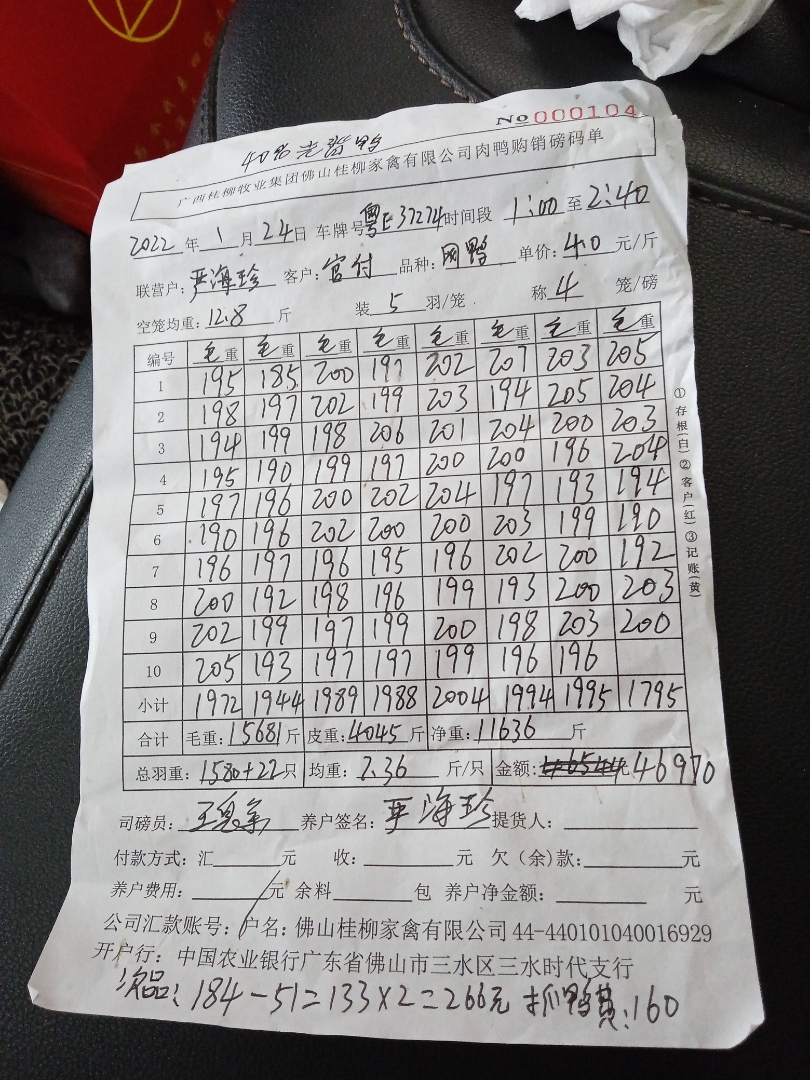 No 000104
40名光背鸭
广西桂柳牧业集团佛山桂柳家禽有限公司肉鸭购销磅码单
2022年1月24日 车牌号粤E37274时间段 1:00至2:40
联营户:严海珍 客户:官付 品种:网鸭 单价:4.0元/斤
空笼均重:12.8斤 装5羽/笼 称4笼/磅
编号 毛重 毛重 毛重 毛重 毛重 毛重 毛重 毛重
1 195 185 200 197 202 207 203 205
2 198 197 202 199 203 194 205 204
3 194 199 198 206 201 204 200 203
4 195 190 199 197 200 200 196 204
5 197 196 200 202 204 197 193 194
6 190 196 202 200 200 203 199 190
7 196 197 196 195 196 202 200 192
8 200 192 198 196 199 193 200 203
9 202 199 197 199 200 198 203 200
10 205 193 197 197 199 196 196
小计 1972 1944 1989 1988 2004 1994 1995 1795
合计 毛重:15681斤 皮重:4045斤 净重:11636斤
总羽重:1580+22只 均重:7.36斤/只 金额:46544元46970
司磅员: 养户签名:严海珍 提货人:
付款方式:汇元 收:元 欠(余)款:元
养户费用:元 余料包 养户净金额:元
公司汇款账号:户名:佛山桂柳家禽有限公司 44-440101040016929
开户行:中国农业银行广东省佛山市三水区三水时代支行
次品:184-51=133×2=266元 抓鸭费:160
①存根(白)②客户(红)③记账(黄)